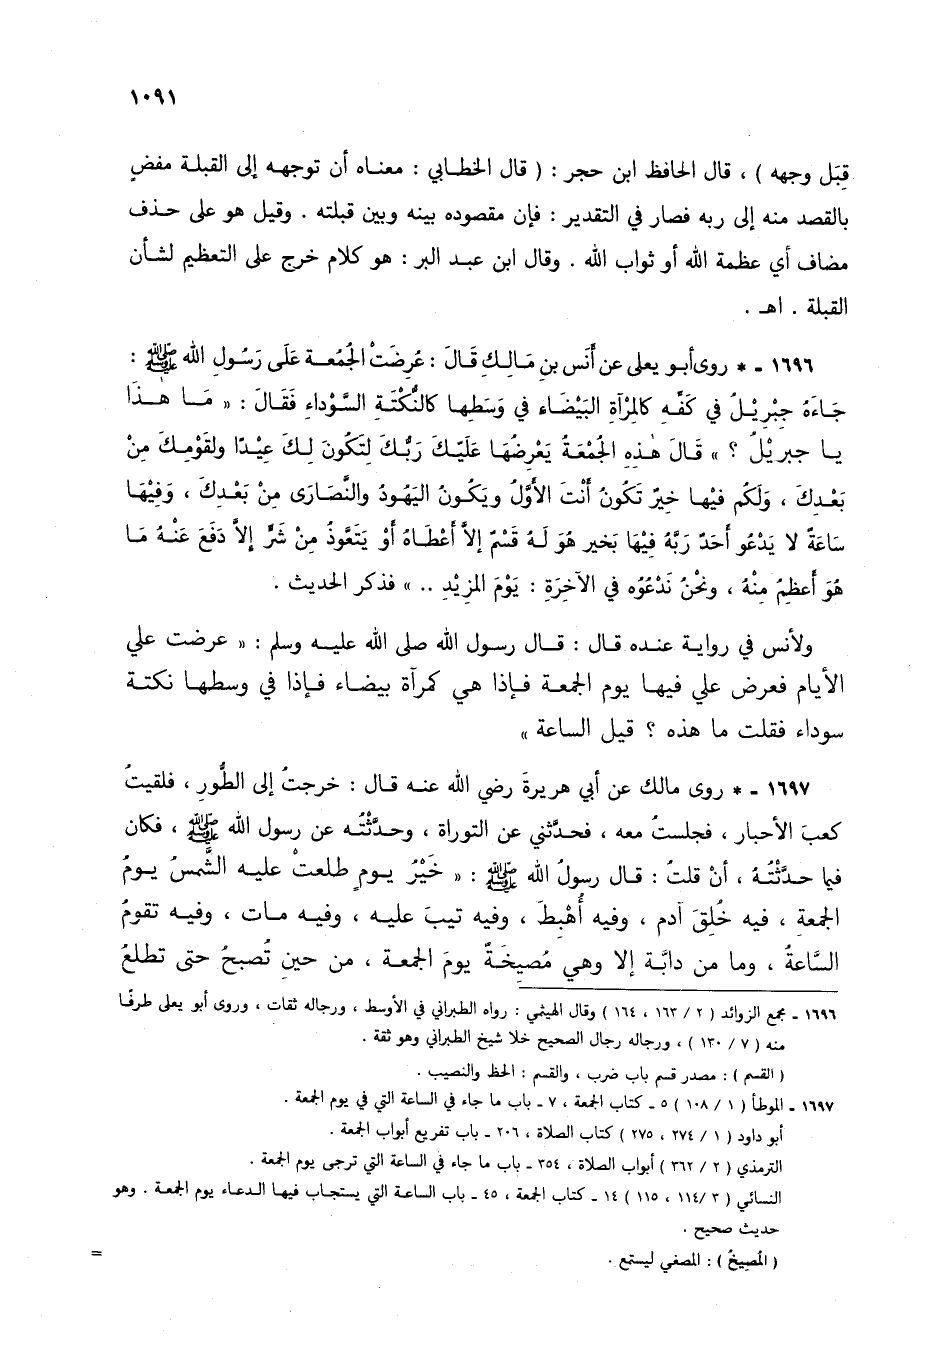 ١٠٩١
قبَل وجهه ) ، قال الحافظ ابن حجر : ( قال الخطابي : معناه أن توجهه إلى القبلة مفضٍ
بالقصد منه إلى ربه فصار في التقدير : فإن مقصوده بينه وبين قبلته . وقيل هو على حذف
مضاف أي عظمة الله أو ثواب الله . وقال ابن عبد البر : هو كلام خرج على التعظيم لشأن
القبلة . اهـ .
١٦٩٦ - * روى أبو يعلى عن أَنَس بنِ مَالِكِ قَالَ : عُرِضَتْ الجُمُعة عَلَى رَسُول الله ﷺ :
جَاءَهُ جِبْريْلُ في كَفّه كالمِرْآةِ البَيْضَاء في وَسَطِها كالنُّكْتَةِ السَّوْداء فَقَالَ : « مَا هٰذَا
يا جبريْلُ ؟ » قَالَ هٰذهِ الجُمْعَةُ يَعْرِضُهَا عَلَيْكَ رَبُّكَ لِتَكُونَ لكَ عِيْدًا ولقَوْمِكَ مِنْ
بَعْدِكَ ، وَلَكُم فيْهَا خيرٌ تَكُونُ أَنْتَ الأوَّلُ ويَكُونُ اليَهُودُ والنَّصَارَى مِنْ بَعْدِكَ ، وَفِيْهَا
سَاعَةٌ لا يَدْعُو أَحَدٌ رَبَّهُ فِيْهَا بَخيرٍ هُوَ لَهُ قَسْمٌ إلاَّ أَعْطَاهُ أَوْ يَتَعَّوذُ مِنْ شَرٍّ إلاَّ دَفَعَ عَنْهُ مَا
هُوَ أَعظَمُ مِنْهُ ، ونحْنُ نَدْعُوه في الآخِرَةِ : يَوْمَ المزِيْدِ .. » فذكر الحديث .
ولأنس في رواية عنده قال : قال رسول الله صلى الله عليه وسلم : « عرضت علي
الأيام فعرض علي فيها يوم الجمعة فإذا هي كمرآة بيضاء فإذا في وسطها نكتة
سوداء فقلت ما هذه ؟ قيل الساعة »
١٦٩٧ - * روى مالك عن أبي هريرةَ رضي الله عنه قال : خرجتُ إلى الطُّورِ ، فلقيتُ
كعبَ الأحبار ، فجلستُ معه ، فحدَّثني عن التوراة ، وحدَّثْتُه عن رسول الله ﷺ ، فكان
فيما حدَّثْتُهُ ، أنْ قلتُ : قال رسولُ الله ﷺ : « خَيْرُ يومٍ طلعتْ عليه الشَّمسُ يومُ
الجمعة ، فيه خُلِقَ آدم ، وفيه أُهْبِطَ ، وفيه تيبَ عليه ، وفيه مات ، وفيه تقومُ
السَّاعةُ ، وما من دابَّة إلا وهي مُصِيخَةٌ يومَ الجمعة ، من حينِ تُصبحُ حتى تطلعُ
١٦٩٦ - مجمع الزوائد ( ٢ / ١٦٣ ، ١٦٤ ) وقال الهيثمي : رواه الطبراني في الأوسط ، ورجاله ثقات ، وروى أبو يعلى طرفًا
منه ( ٧ / ١٣٠ ) ، ورجاله رجال الصحيح خلا شيخ الطبراني وهو ثقة .
( القسم ) : مصدر قسم باب ضرب ، والقسم : الحظ والنصيب .
١٦٩٧ - الموطأ ( ١ / ١٠٨ ) ٥ - كتاب الجمعة ، ٧ - باب ما جاء في الساعة التي في يوم الجمعة .
أبو داود ( ١ / ٢٧٤ ، ٢٧٥ ) كتاب الصلاة ، ٢٠٦ - باب تفريع أبواب الجمعة .
الترمذي ( ٢ / ٣٦٢ ) أبواب الصلاة ، ٣٥٤ - باب ما جاء في الساعة التي ترجى يوم الجمعة .
النسائي ( ٣ /١١٤ ، ١١٥ ) ١٤ - كتاب الجمعة ، ٤٥ - باب الساعة التي يستجاب فيها الدعاء يوم الجمعة . وهو
حديث صحيح .
( المُصيخُ ) : المصغي ليستمع .
=